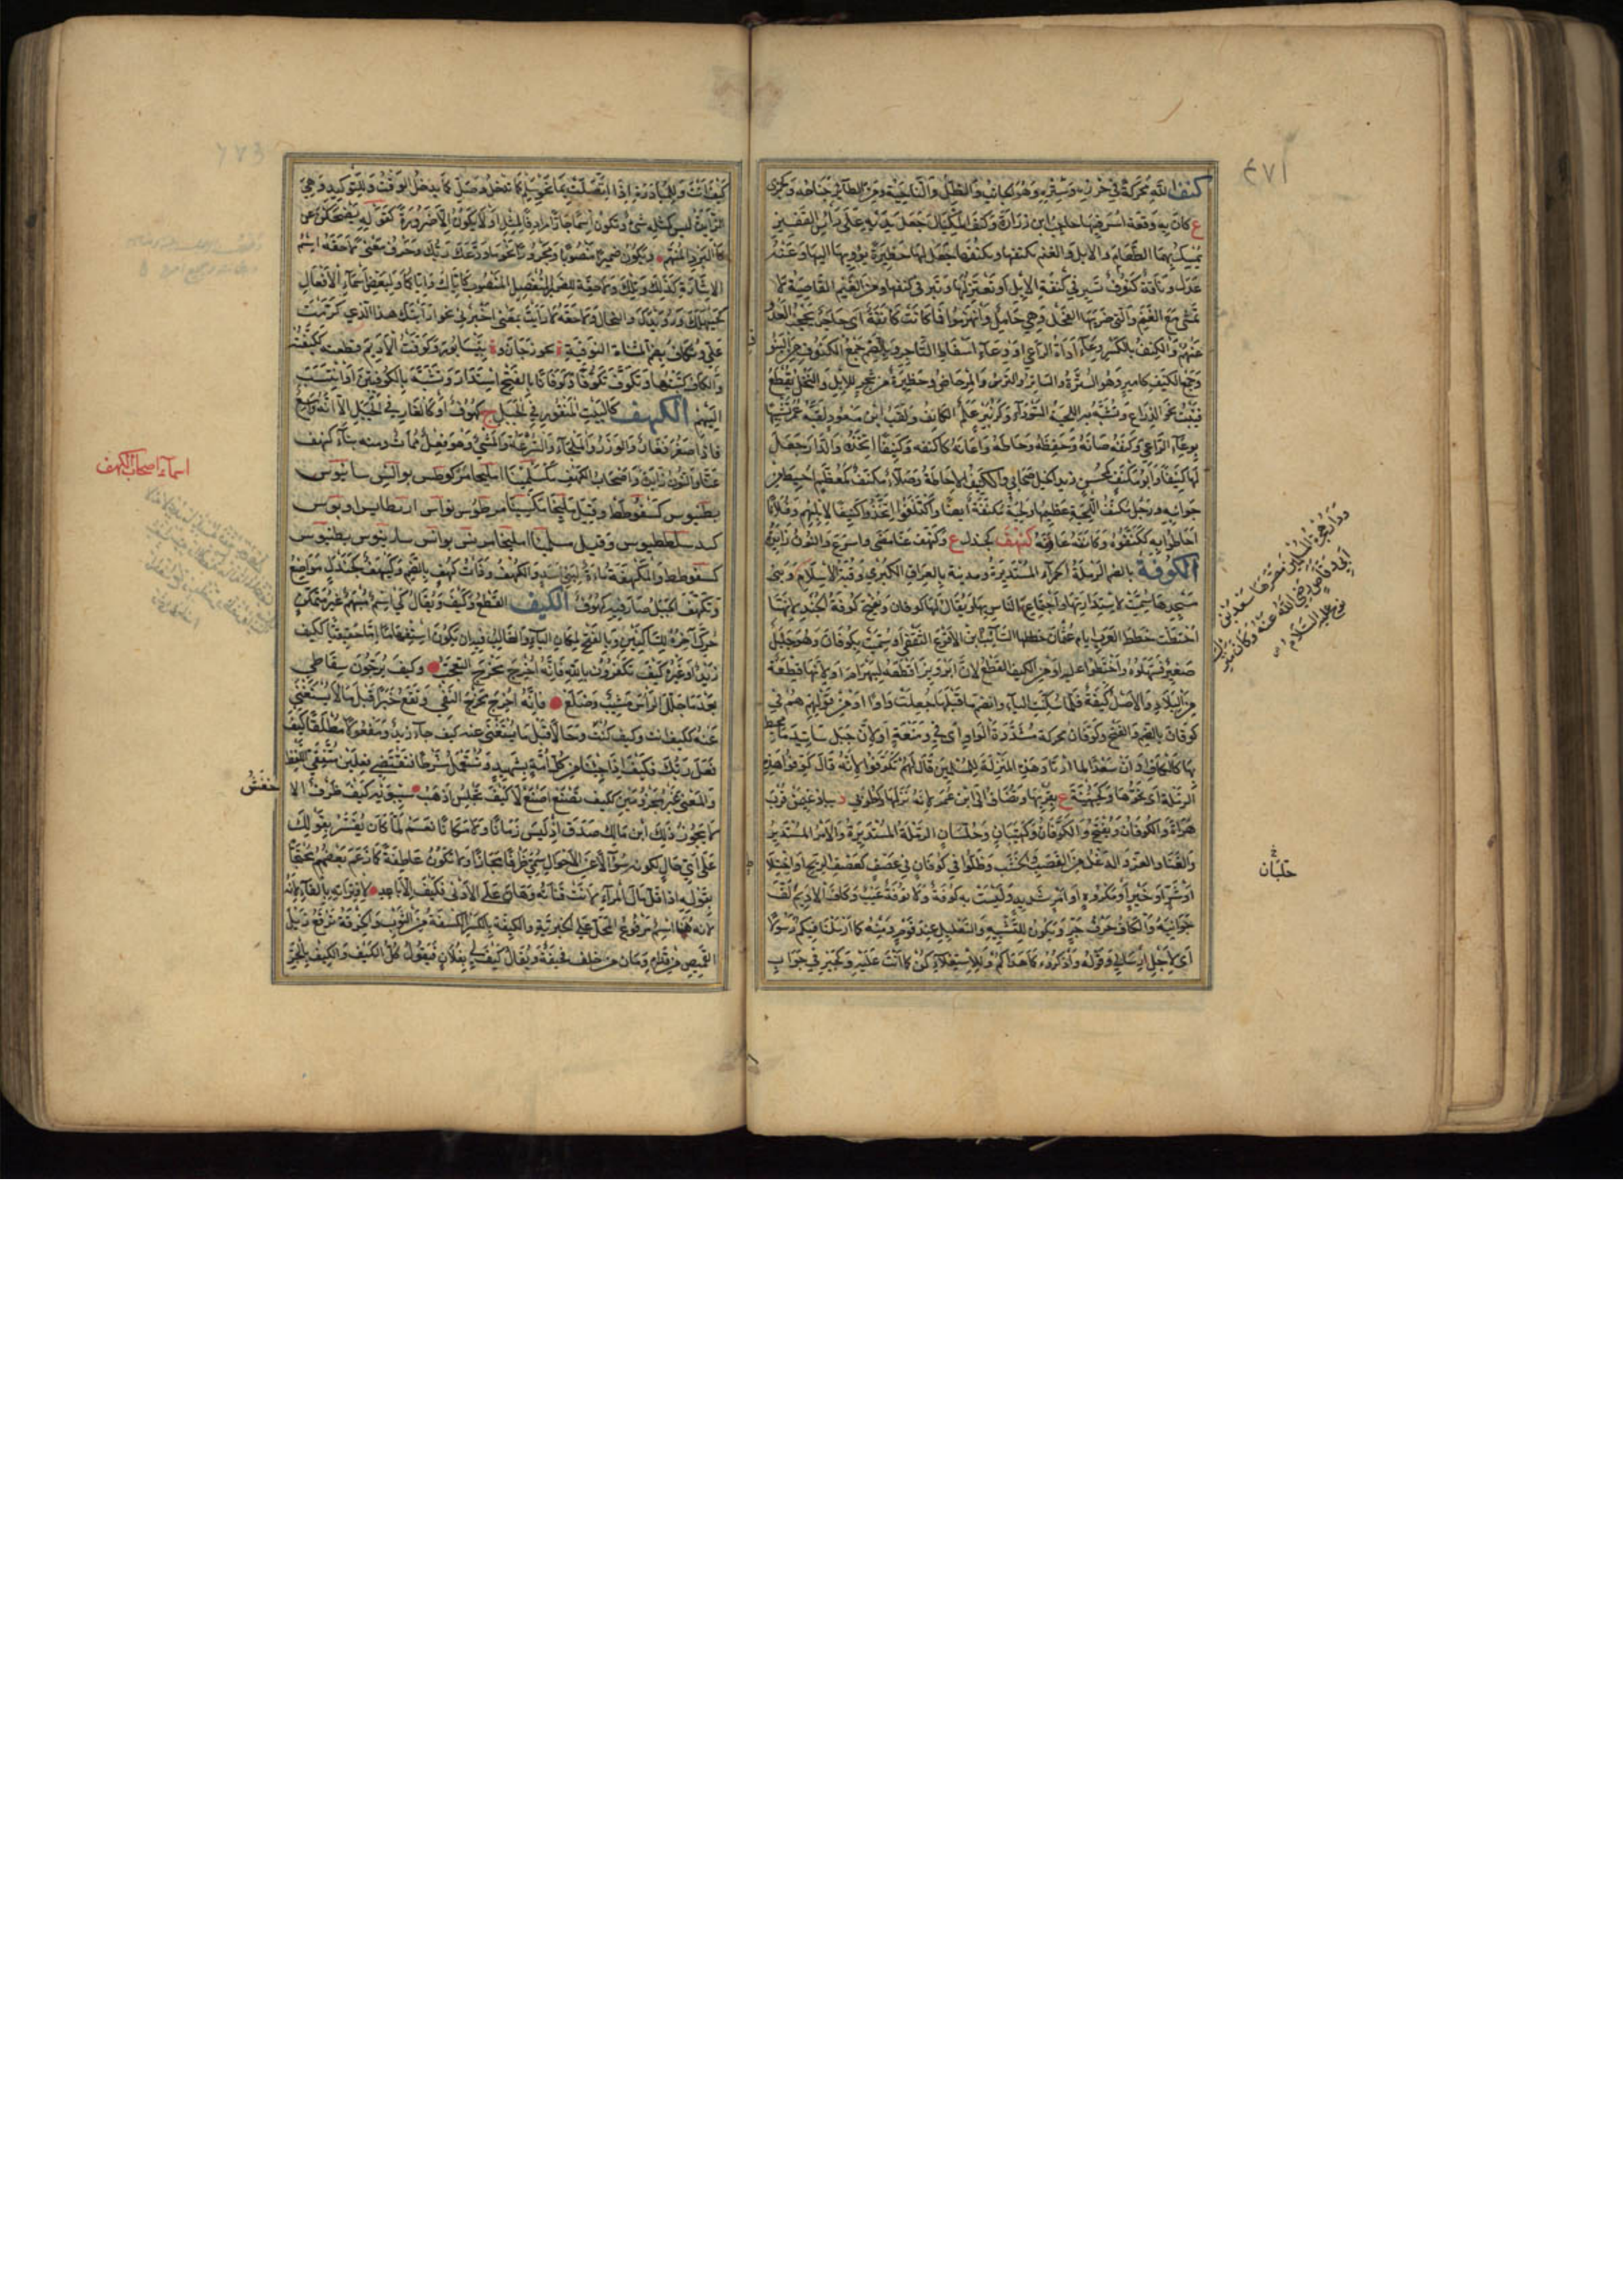 ٤٧١
كنف الله محركة في حرزه وستره وهو الجانب والظل والناحية ومن الطائر جناحه وكجمزى
ع كان به وقعة اسر فيها حاجب ابن زرارة وكنف الكيال جعل يديه على راس القفيز
يمسك بهما الطعام والابل والغنم يكنفها ويكنفها جعل لها حظيرة يؤويها اليها وعنه
عدل وناقة كنوف تسير في كنفة الابل او تعتزلها وتبرك في كنفها ومن الغنم القاصية لا
تمشي مع الغنم والتي ضربها الفحل وهي حامل وانهزموا فما كانت كانفة اي حاجز يحجز العدو
عنهم والكنف بالكسر وعاء اداة الراعي او وعاء اسقاط التاجر وبالضم جمع الكنوف من النوق
وجمع الكنيف كامير وهو السترة والساتر والترس والمرحاض وحظيرة من شجر للابل والنخل يقطع
فينبت نحو الذراع وتشبه به اللحية السوداء وكزبير علم الكانف ولقب ابن مسعود لقبه عمر تشبيها
بوعاء الراعي وكنفه صانه وحفظه وحاطه واعانه كاكنفه وكنيفا اتخذه والدار جعل
لها كنيفا وابو مكنف كمحسن زيد الخيل صحابي والتكنيف الاحاطة وصلاء مكنف كمعظم احيط من
جوانبه ورجل مكنف اللحية عظيمها ولحية مكنفة ايضا واكتنفوا اتخذوا كنيفا لابلهم وفلانا
احاطوا به كتكنفوه وكانفه عاونه كنهف كجندل ع وكنهف عنا مضى واسرع والنون زايدة
الكوفة بالضم الرملة الحمراء المستديرة ومدينة بالعراق الكبرى وقبة الاسلام وبني
مسجدها سميت لاستدارتها واجتماع الناس بها ويقال لها كوفان ويفتح كوفة الجند لانها
اختطت خطط العرب ايام عثمان خططها السائب بن الاقرع الثقفي او سميت بكوفان وهو جبيل
صغير فسهلوه واختطوا عليه او من الكيف القطع لان ابرويز اقطعه لبهرام او لانها قطعة
من البلاد والاصل كيفة فلما سكنت الياء وانضم ما قبلها جعلت واوا او من قولهم هم في
كوفان بالضم والفتح وكوفان محركة مشددة الواو اي في عز ومنعة او لان جبل ساتيدما محيط
بها كالكاف او ان سعدا لما ارتاد هذه المنزلة للمسلمين قال لهم تكوفوا لانه قال كوفوا هذه
الرملة اي نحوها وكجهينة ع بقربها ويضاف الى ابن عمر لانه نزلها وكطوبى د بباذغيس قرب
هراة والكوفان ويفتح والكوفان وكهيبان وجلسان الرملة المستديرة والامر المستدير
والعناء والعز والدغل من القصب والخشب وظلوا في كوفان في عصف كعصف الريح او اختلاط
او شر او خير او مكروه او امر شديد وليست به كوفة ولا توفة عيب وكاف الاديم كف
جوانبه والكاف حرف جر ويكون للتشبيه والتعليل عند قوم ومنه كما ارسلنا فيكم رسولا
اي لاجل ارسالي وقوله واذكروه كما هداكم وللاستعلاء كن كما انت عليه وكخير في جواب
ودار هجرة المسلمين مصرها سعد بن
ابي وقاص رضي الله عنه وكان منزل
نوح عليه السلام
جلبان
كيف انت وللمبادرة اذا اتصلت بما نحو سلم كما تدخل وصل كما يدخل الوقت وللتوكيد وهي
الزايدة ليس كمثله شيء وتكون اسما جارا مرادفا لمثل او لا يكون الا ضرورة كقوله يضحكن عن
كالبرد المنهم ويكون ضميرا منصوبا ومجرورا نحو ما ودعك ربك وحرف معنى لاحقة اسم
الاشارة كذلك وتلك ولاحقة للضمير المنفصل المنصوب كاياك واياكما ولبعض اسماء الافعال
كحيهلك ورويدك والنجاك ولاحقة لارايت بمعنى اخبرني نحو ارايتك هذا الذي كرمت
علي وتكاف بضم المثناة الفوقية ة بجوزجان وة بنيسابور وكوفت الاديم قطعته ككيفته
والكاف كتبتها وتكوف تكوفا وكوفانا بالفتح استدار وتشبه بالكوفيين او انتسب
اليهم الكهف كالبيت المنقور في الجبل ج كهوف او كالغار في الجبل الا انه واسع
فاذا صغر فغار والوزر والملجاء والسرعة والمشي وهو فعل ممات ومنه بناء كنهف
عنا والنون زايدة واصحاب الكهف مكسلمينا املیخا مرکوطس نوالس سانيوس
بطنيوس كشفوطط وقيل مليخا مكسينا مرطوس نواس اربطانس اونوس
كند سلططيوس وقيل سلمينا امليخا مرطونس يوانس سادينوس بطنيوس
كسفوطط والمكهفة ماءة لبني اسد والكهف وذات كهف بالضم وكنهف كجندل مواضع
وتكهف الجبل صار فيه كهوف الكيف القطع وكيف ويقال كي اسم مبهم غير متمكن
حرك آخره للساكنين وبالفتح لمكان الياء والغالب فيه ان يكون استفهاما اما حقيقيا ككيف
زيد او غيره كيف تكفرون بالله فانه اخرج مخرج التعجب وكيف يرجون سقاطي
بعد ما جلل الراس مشيب وصلع فانه اخرج مخرج النفي ويقع خبرا قبل ما لا يستغني
عنه ككيف انت وكيف كنت وحالا قبل ما يستغنى عنه كيف جاء زيد ومفعولا مطلقا كيف
فعل ربك فكيف اذا جئنا من كل امة بشهيد ويستعمل شرطا فيقتضي فعلين متفقي اللفظ
والمعنى غير مجزومين ككيف تصنع اصنع لا كيف تجلس اذهب سيبويه كيف ظرف الا
لا يجوز ذلك ابن مالك صدق اذ ليس زمانا ولا مكانا نعم لما كان يفسر بقولك
على اي حال لكونه سؤالا عن الاحوال سمي ظرفا مجازا ولا تكون عاطفة كما زعم بعضهم محتجا
بقوله اذا قل مال المرء لانت قناته وهان على الادنى فكيف الاباعد لاقترانه بالفاء لانه
لانه هنا اسم مرفوع المحل على الخبرية والكيفة بالكسر الكسفة من الثوب والخرقة ترقع ذيل
القميص من قدام وما كان من خلف فحيفة ويقال كيف لي بفلان فيقول كل الكيف والكيف بالجر
اسماء اصحاب الكهف
خفش